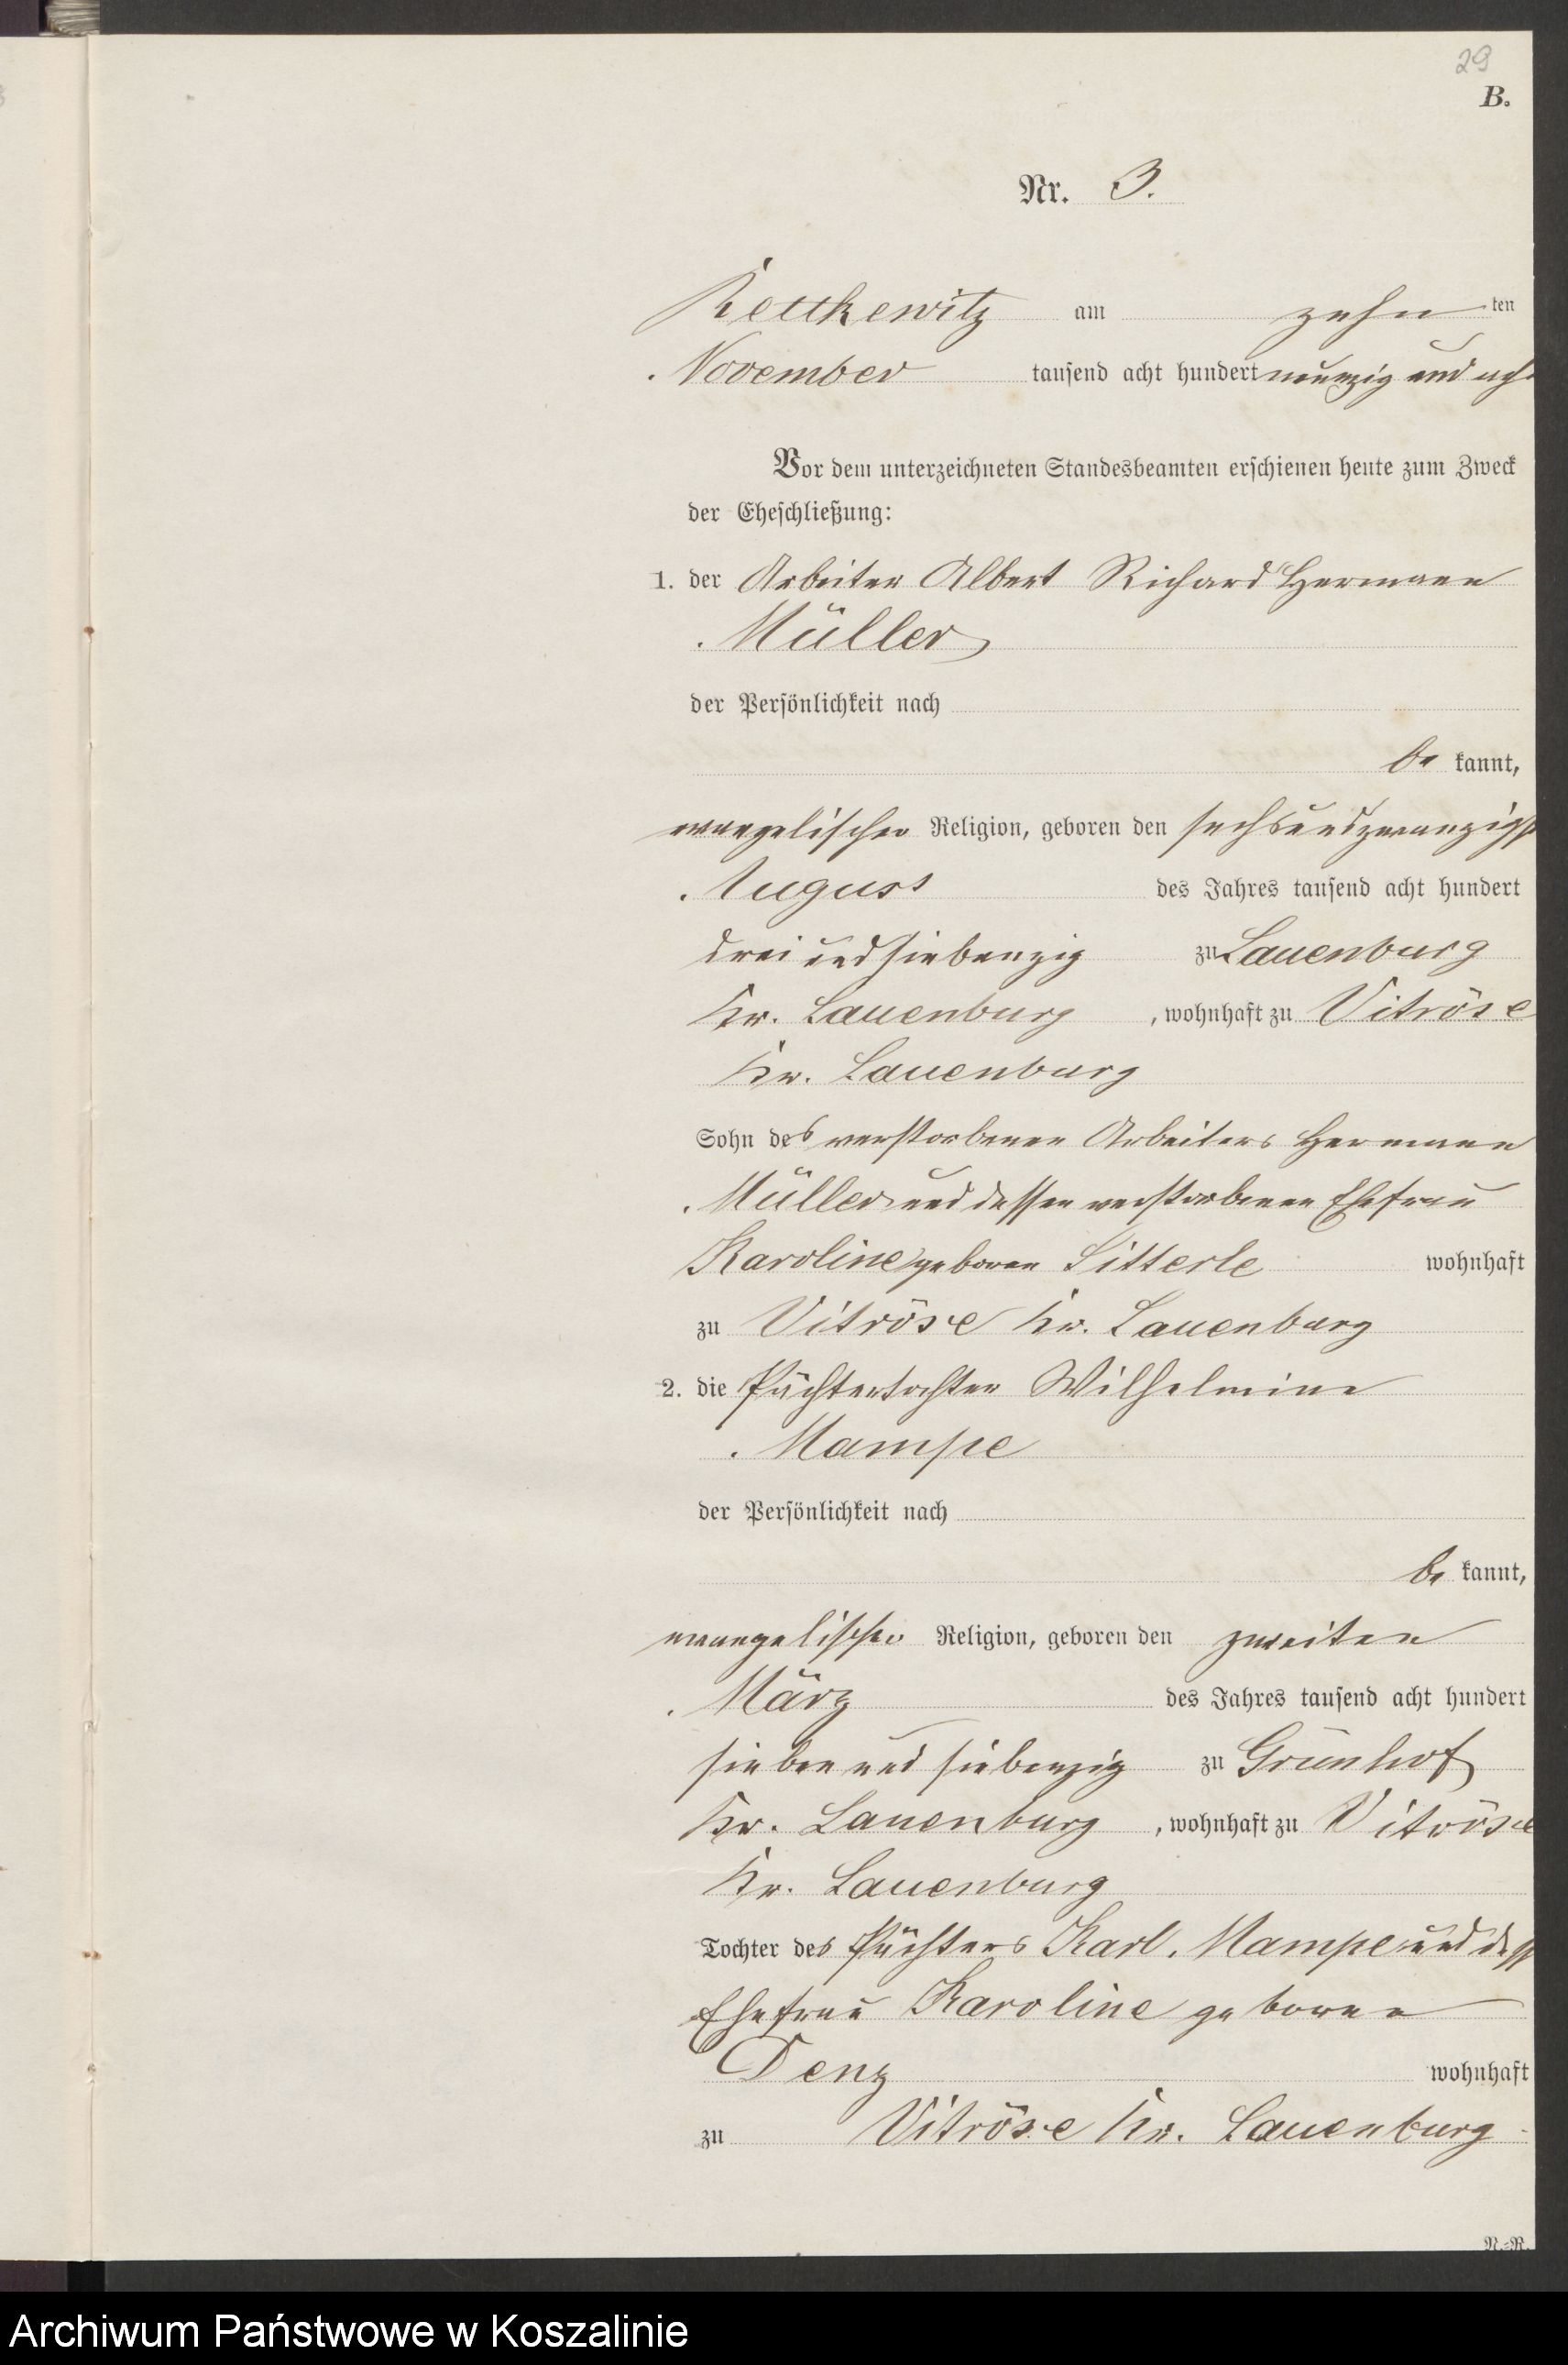 29
B.
Nr. 3.
Rettkewitz am zehn ten
November tausend acht hundert neunzig und ach
Vor dem unterzeichneten Standesbeamten erschienen heute zum Zweck
der Eheschließung:
1. der Arbeiter Albert Richard Hermann
Müller
der Persönlichkeit nach
be kannt,
evangelischer Religion, geboren den sechsundzwanzigst
August des Jahres tausend acht hundert
drei und siebenzig zu Lauenburg
Kr. Lauenburg, wohnhaft zu Vitröse
Kr. Lauenburg
Sohn des verstorbenen Arbeiters Hermann
Müller und dessen verstorbenen Ehefrau
Karoline geboren Sitterle wohnhaft
zu Vitröse Kr. Lauenburg
2. die Pächtertochter Wilhelmine
Mampe
der Persönlichkeit nach
be kannt,
evangelischer Religion, geboren den zweiten
März des Jahres tausend acht hundert
sieben und siebenzig zu Grünhof
Kr. Lauenburg, wohnhaft zu Vitröse
Kr. Lauenburg
Tochter des Pächters Karl Mampe und dess
Ehefrau Karoline geboren
Denz wohnhaft
zu Vitröse Kr. Lauenburg
N.=R.
Archiwum Państwowe w Koszalinie